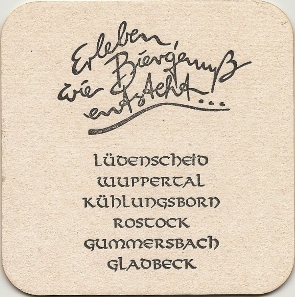 Erleben
wie Biergenuß
entsteht...
LÜDENSCHEID
WUPPERTAL
KÜHLUNGSBORN
ROSTOCK
GUMMERSBACH
GLADBECK